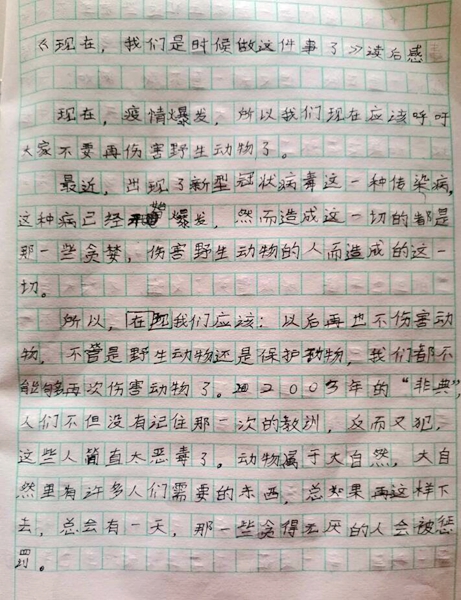 《现在，我们是时候做这件事了》读后感
现在，疫情爆发，所以我们现在应该呼吁
大家不要再伤害野生动物了。
最近，出现了新型冠状病毒这一种传染病，
这种病已经爆发，然而造成这一切的都是
那一些贪婪，伤害野生动物的人而造成的这一
切。
所以，在现我们应该：以后再也不伤害动
物，不管是野生动物还是保护动物，我们都不
能够再次伤害动物了。2003年的“非典”，
人们不但没有记住那一次的教训，反而又犯，
这些人简直太恶毒了。动物属于大自然，大自
然里有许多人们需要的东西，如果再这样下
去，总会有一天，那一些贪得无厌的人会被惩
罚。